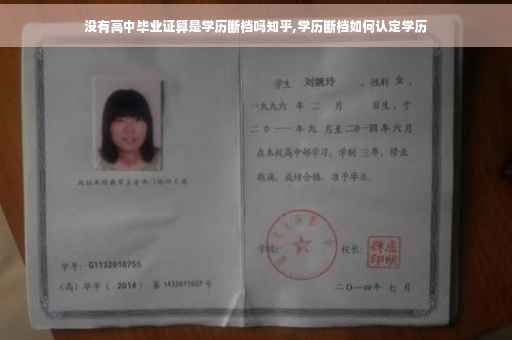 没有高中毕业证算是学历断档吗知乎,学历断档如何认定学历
学生 刘婉玲 ,性别 女,
一九九六 年 二 月 日生,于
二0一一 年 九 月至 二0一四 年 六 月
在本校高中部学习,学制 三年,修业
期满,成绩合格,准予毕业。
学号: G1132010755
(高)毕字( 2014 )第 1432011027 号
学校:
校长:
二〇一四年 七 月